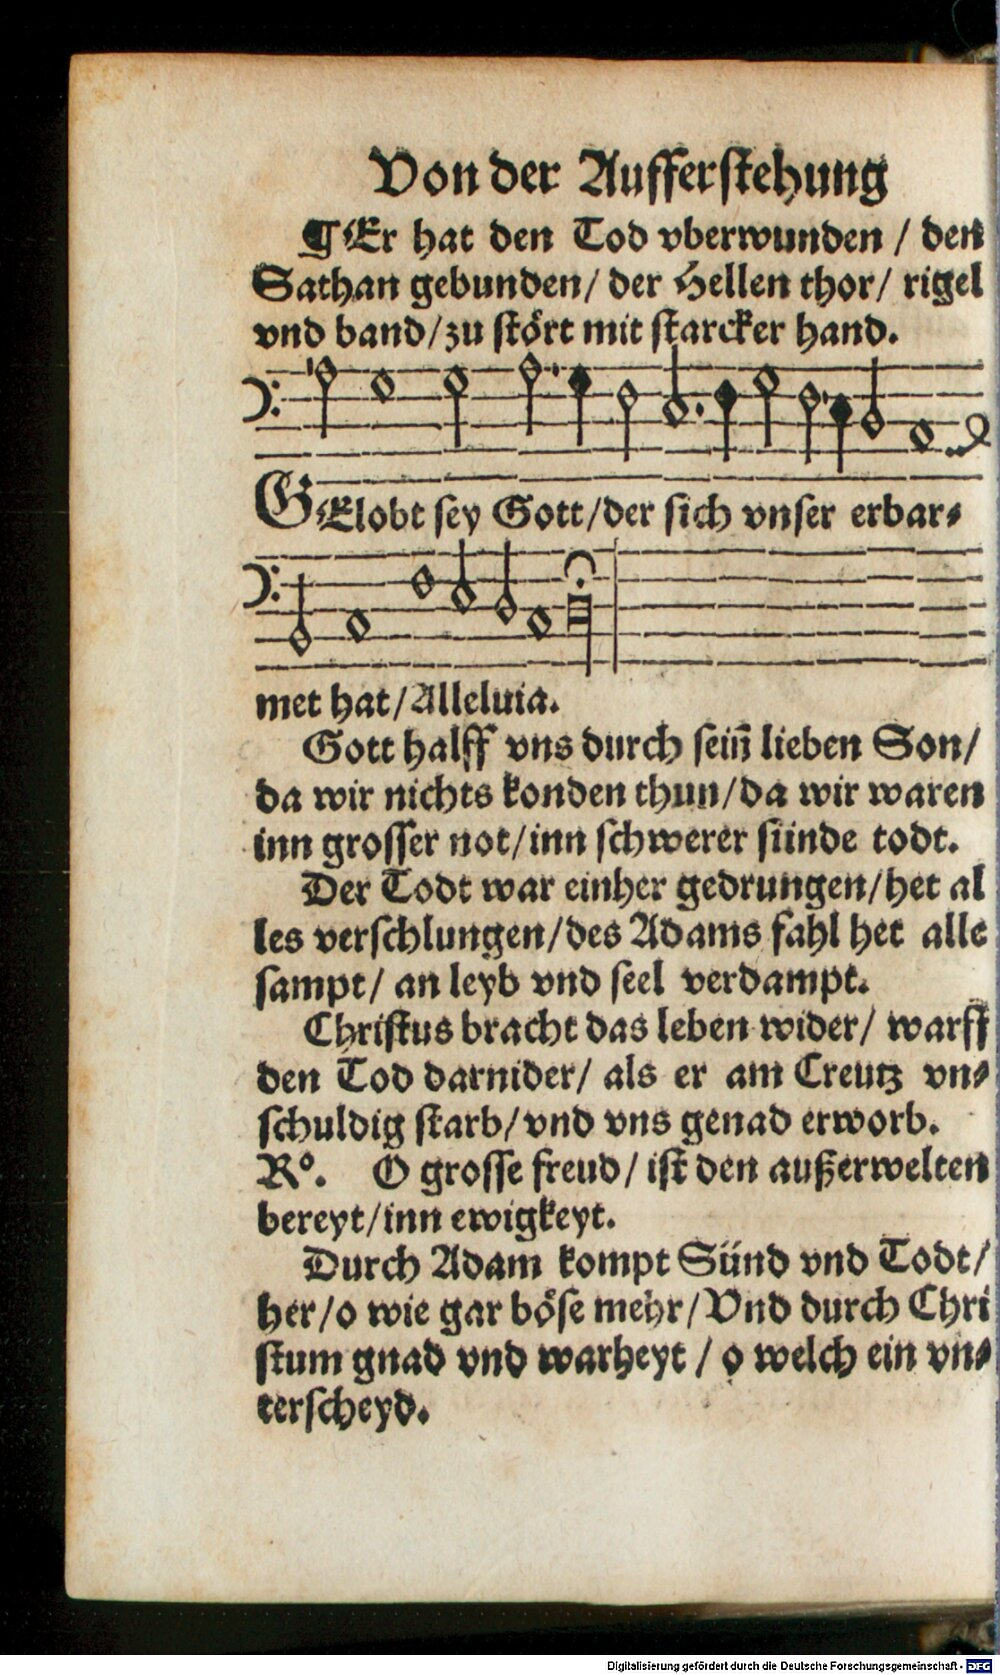 Von der Aufferstehung
¶Er hat den Tod vberwunden / den
Sathan gebunden/ der Hellen thor/ rigel
vnd band/zu stört mit starcker hand.
GElobt sey Gott/der sich vnser erbar⸗
met hat/Alleluia.
Gott halff vns durch sein̄ lieben Son/
da wir nichts konden thun/da wir waren
inn grosser not/inn schwerer sünde todt.
Der Todt war einher gedrungen/het al
les verschlungen/des Adams fahl het alle
sampt/ an leyb vnd seel verdampt.
Christus bracht das leben wider/ warff
den Tod darnider/ als er am Creutz vn⸗
schuldig starb/vnd vns genad erworb.
Rº. O grosse freud/ ist den außerwelten
bereyt/inn ewigkeyt.
Durch Adam kompt Sünd vnd Todt/
her/o wie gar böse mehr/Vnd durch Chri
stum gnad vnd warheyt / o welch ein vn⸗
terscheyd.
Digitalisierung gefördert durch die Deutsche Forschungsgemeinschaft - DFG